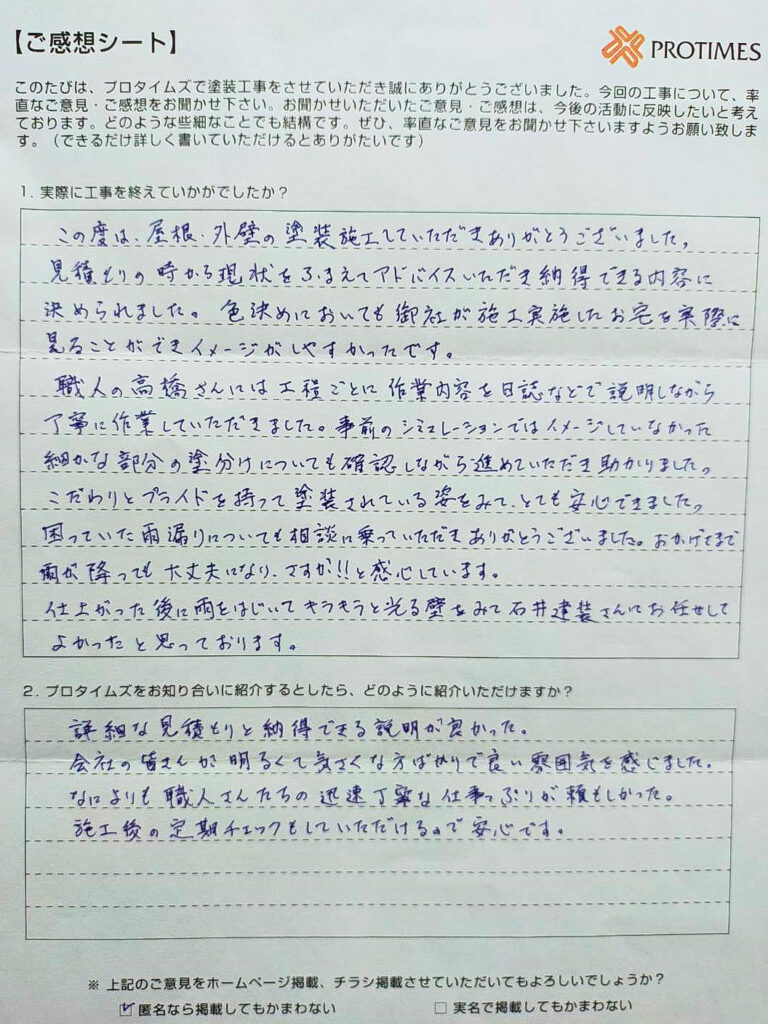 【ご感想シート】
PROTIMES
このたびは、プロタイムズで塗装工事をさせていただき誠にありがとうございました。今回の工事について、率
直なご意見・ご感想をお聞かせ下さい。お聞かせいただいたご意見・ご感想は、今後の活動に反映したいと考え
ております。どのような些細なことでも結構です。ぜひ、率直なご意見をお聞かせ下さいますようお願い致しま
す。（できるだけ詳しく書いていただけるとありがたいです）
1. 実際に工事を終えていかがでしたか？
この度は、屋根・外壁の塗装施工していただきありがとうございました。
見積もりの時から現状をふまえてアドバイスいただき納得できる内容に
決められました。色決めにおいても御社が施工実施したお宅を実際に
見ることができイメージがしやすかったです。
職人の高橋さんには工程ごとに作業内容を日誌などで説明しながら
丁寧に作業していただきました。事前のシミュレーションではイメージしていなかった
細かな部分の塗分けについても確認しながら進めていただき助かりました。
こだわりとプライドを持って塗装されている姿をみて、とても安心できました。
困っていた雨漏りについても相談に乗っていただきありがとうございました。おかげさまで
雨が降っても大丈夫になり、さすが!!と感心しています。
仕上がった後に雨をはじいてキラキラと光る壁をみて石井建装さんにお任せして
よかったと思っております。
2. プロタイムズをお知り合いに紹介するとしたら、どのように紹介いただけますか？
詳細な見積もりと納得できる説明が良かった。
会社の皆さんが明るくて気さくな方ばかりで良い雰囲気を感じました。
なによりも職人さんたちの迅速丁寧な仕事っぷりが頼もしかった。
施工後の定期チェックもしていただけるので安心です。
※ 上記のご意見をホームページ掲載、チラシ掲載させていただいてもよろしいでしょうか？
☑匿名なら掲載してもかまわない □ 実名で掲載してもかまわない